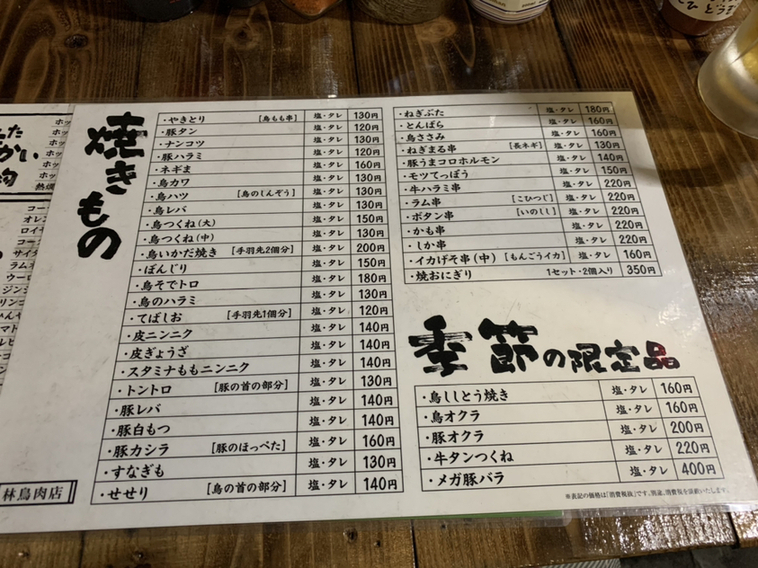 焼きもの
・やきとり [鳥もも串] 塩・タレ 130円
・豚タン 塩・タレ 120円
・ナンコツ 塩・タレ 130円
・豚ハラミ 塩・タレ 120円
・ネギま 塩・タレ 160円
・鳥カワ 塩・タレ 130円
・鳥ハツ [鳥のしんぞう] 塩・タレ 130円
・鳥レバ 塩・タレ 130円
・鳥つくね(大) 塩・タレ 150円
・鳥つくね(中) 塩・タレ 130円
・鳥いかだ焼き [手羽先2個分] 塩・タレ 200円
・ぼんじり 塩・タレ 150円
・鳥そでトロ 塩・タレ 180円
・鳥のハラミ 塩・タレ 130円
・てばしお [手羽先1個分] 塩・タレ 120円
・皮ニンニク 塩・タレ 140円
・皮ぎょうざ 塩・タレ 140円
・スタミナももニンニク 塩・タレ 140円
・トントロ [豚の首の部分] 塩・タレ 130円
・豚レバ 塩・タレ 140円
・豚白もつ 塩・タレ 140円
・豚カシラ [豚のほっぺた] 塩・タレ 160円
・すなぎも 塩・タレ 130円
・せせり [鳥の首の部分] 塩・タレ 140円
・ねぎぶた 塩・タレ 180円
・とんばら 塩・タレ 160円
・鳥ささみ 塩・タレ 160円
・ねぎまる串 [長ネギ] 塩・タレ 130円
・豚うまコロホルモン 塩・タレ 140円
・モツてっぽう 塩・タレ 150円
・牛ハラミ串 塩・タレ 220円
・ラム串 [こひつじ] 塩・タレ 220円
・ボタン串 [いのしし] 塩・タレ 220円
・かも串 塩・タレ 220円
・しか串 塩・タレ 220円
・イカげそ串(中) [もんごうイカ] 塩・タレ 160円
・焼おにぎり 1セット・2個入り 350円
季節の限定品
・鳥ししとう焼き 塩・タレ 160円
・鳥オクラ 塩・タレ 160円
・豚オクラ 塩・タレ 200円
・牛タンつくね 塩・タレ 220円
・メガ豚バラ 塩・タレ 400円
※表記の価格は「消費税抜」です。別途、消費税を頂戴いたします。
林鳥肉店